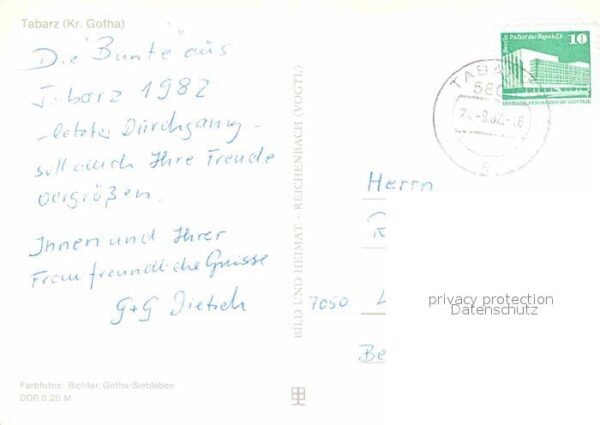 Tabarz (Kr. Gotha)
Die "Bunte" aus
Tabarz 1982
- letzter Durchgang -
soll auch Ihre Freude
vergrößen.
Ihnen und Ihrer
Frau freundliche Grüsse
G+G Dietsch
Farbfotos: Richter, Gotha-Siebleben
DDR 0,20 M
BILD UND HEIMAT · REICHENBACH (VOGTL)
Berlin Palast der Republik 10
DEUTSCHE DEMOKRATISCHE REPUBLIK
TABARZ
580
Herrn
7050 L
Be
privacy protection
Datenschutz